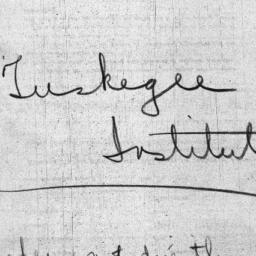 Tuskegee
Institut